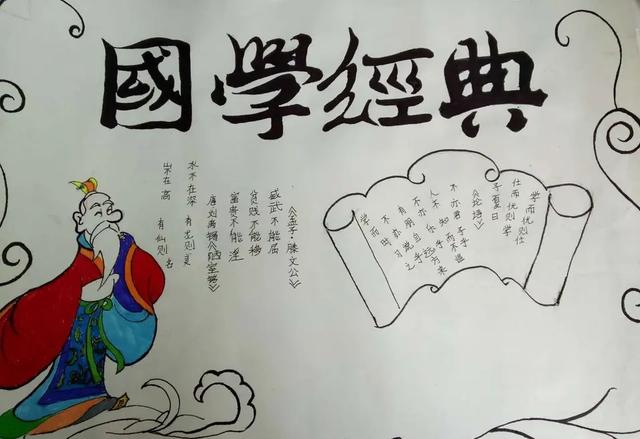 國學經典
山不在高 有仙则名
水不在深 有龙则灵
唐刘禹锡《陋室铭》
富贵不能淫
贫贱不能移
威武不能屈
《孟子·滕文公》
学而时习之
不亦说乎
有朋自远方来
不亦乐乎
人不知而不愠
不亦君子乎
《论语》
子夏曰
仕而优则学
学而优则仕